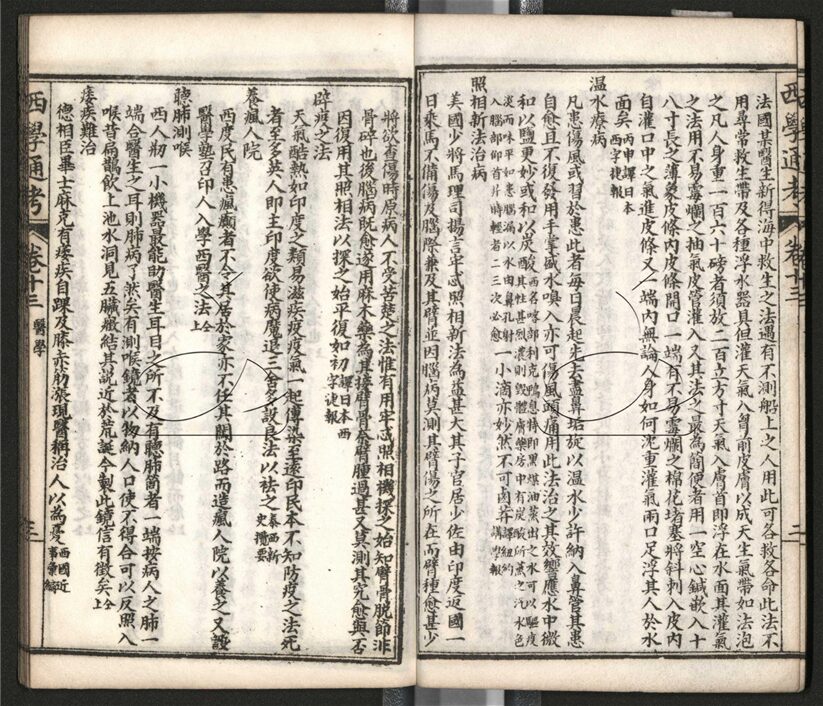 西學通考 卷十三 二
法國某醫生新得海中救生之法遇有不測船上之人用此可各救各命此法不
用尋常救生帶及各種浮水器具但灌天氣入胷前皮膚以成天生氣帶如法泡
之凡人身重一百六十磅者須放二百立方寸天氣入膚首即浮在水面其灌氣
之法用不易霉爛之抽氣皮管灌入又其法之最為簡便者用一空心鍼嵌入十
八寸長之薄象皮條內皮條開口一端有不易霉爛之棉花堵塞將斜刺入皮內
自灌口中之氣進皮條又一端內無論人身如何沈重灌氣兩口足浮其人於水
面矣 丙申譯日本西字捷報
温水療病
凡患傷風或習於患此者每日晨起先去盡鼻垢旋以温水少許納入鼻管其患
自愈且不復發用手掌盛水嗅入亦可傷風頭痛用此法治之其效響應水中微
和以鹽更妙或和以炭酸
一小滴亦妙然不可鹵莽 譯紐約講學報
照相新法治病
美國少將馬理司揚言牢忒照相新法為益甚大其子官居少佐由印度返國一
日乘馬不備傷及腦際兼及其臂並因腦病莫測其臂傷之所在而臂種愈甚少
將欲查傷時原病人不受苦楚之法惟有用牢忒照相機探之始知臂骨脫節非
骨碎也後腦病既愈遂用麻木藥為其接臂骨奈臂腫過甚又莫測其究愈與否
因復用其照相法以探之始平復如初 譯日本西字捷報
辟疫之法
天氣酷熱如印度之類易滋疾疫疫氣一起傳染至遠印民本不知防疫之法死
者至多英人即主印度欲使病魔退三舍多設良法以祛之 泰西新史攬要
養瘋人院
西度民有患瘋癲者不令其居於家亦不任其闖於路而造瘋人院以養之又設
醫學塾召印人入學西醫之法 仝上
聽肺測喉
西人刱一小機器最能助醫生耳目之所不及有聽肺筒者一端按病人之肺一
端合醫生之耳則肺病了然矣有測喉鏡者以物納人口使不得合可以反照入
喉昔扁鵲飲上池水洞見五臟癥結其說近於荒誕今製此鏡信有徵矣 仝上
痿疾難治
德相臣畢士麻克有痿疾自踝及膝赤筋漲現醫稱治人以為憂 西國近事彙編
西學通考 卷十三 醫學 三